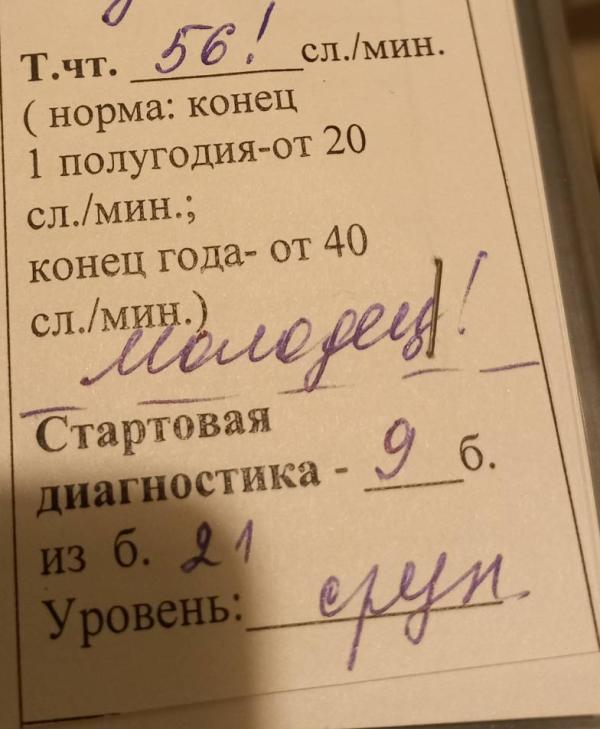 Т.чт. 56! сл./мин.
( норма: конец
1 полугодия-от 20
сл./мин.;
конец года- от 40
сл./мин.)
Молодец!
Стартовая
диагностика - 9 б.
из б. 21
Уровень: